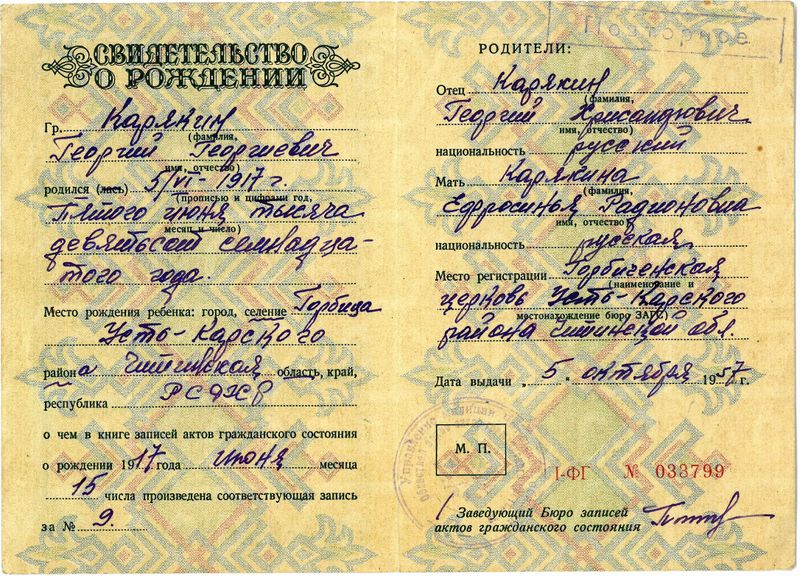 СВИДЕТЕЛЬСТВО
О РОЖДЕНИИ
Гр. Карякин
(фамилия,
Георгий Георгиевич
имя, отчество)
родился (лась) 5/VI - 1917 г.
(прописью и цифрами год,
Пятого июня тысяча
месяц и число)
девятьсот семнадца-
того года.
Место рождения ребенка: город, селение Горбица
Усть-Карского
района Читинская область, край,
республика РСФСР
о чем в книге записей актов гражданского состояния
о рождении 1917 года июня месяца
15 числа произведена соответствующая запись
за № 9.
Повторное
РОДИТЕЛИ:
Отец Карякин
(фамилия,
Георгий Хрисандович
имя, отчество)
национальность русский
Мать Карякина
(фамилия,
Ефросинья Радионовна
имя, отчество)
национальность русская
Место регистрации Горбиченская
(наименование и
церковь Усть-Карского
местонахождение бюро ЗАГС)
района Читинской обл.
Дата выдачи „ 5 " октября 1957 г.
М. П.
I-ФГ № 033799
Заведующий Бюро записей
актов гражданского состояния